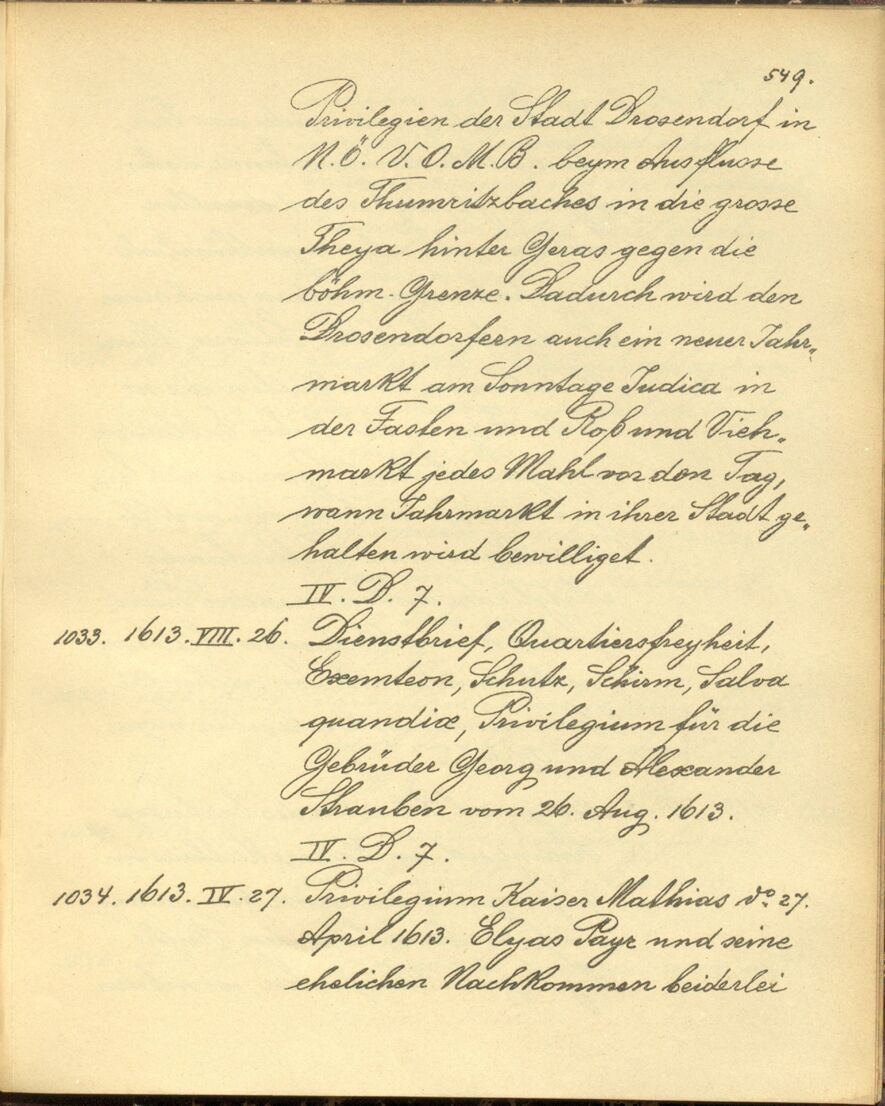 549.
Privilegien der Stadt Drosendorf in
N.Ö. V.O.M.B. beym Ausflusse
des Thumritzbaches in die grosse
Theya hinter Geras gegen die
böhm. Grenze. Dadurch wird den
Drosendorfern auch ein neuer Jahr„
markt am Sonntage Judica in
der Fasten und Roß und Vieh„
markt jedes Mahl vor den Tag,
wann Jahrmarkt in ihrer Stadt ge„
halten wird bewilliget.
IV. D. 7.
1033. 1613. VIII. 26. Dienstbrief, Quartiersfreyheit,
Exemteon, Schutz, Schirm, Salva
quandiae, Privilegium für die
Gebrüder Georg und Alexander
Strauben vom 26. Aug. 1613.
IV. D. 7.
1034. 1613. IV. 27. Privilegium Kaiser Mathias do. 27.
April 1613. Elyas Payr und seine
ehelichen Nachkommen beiderlei